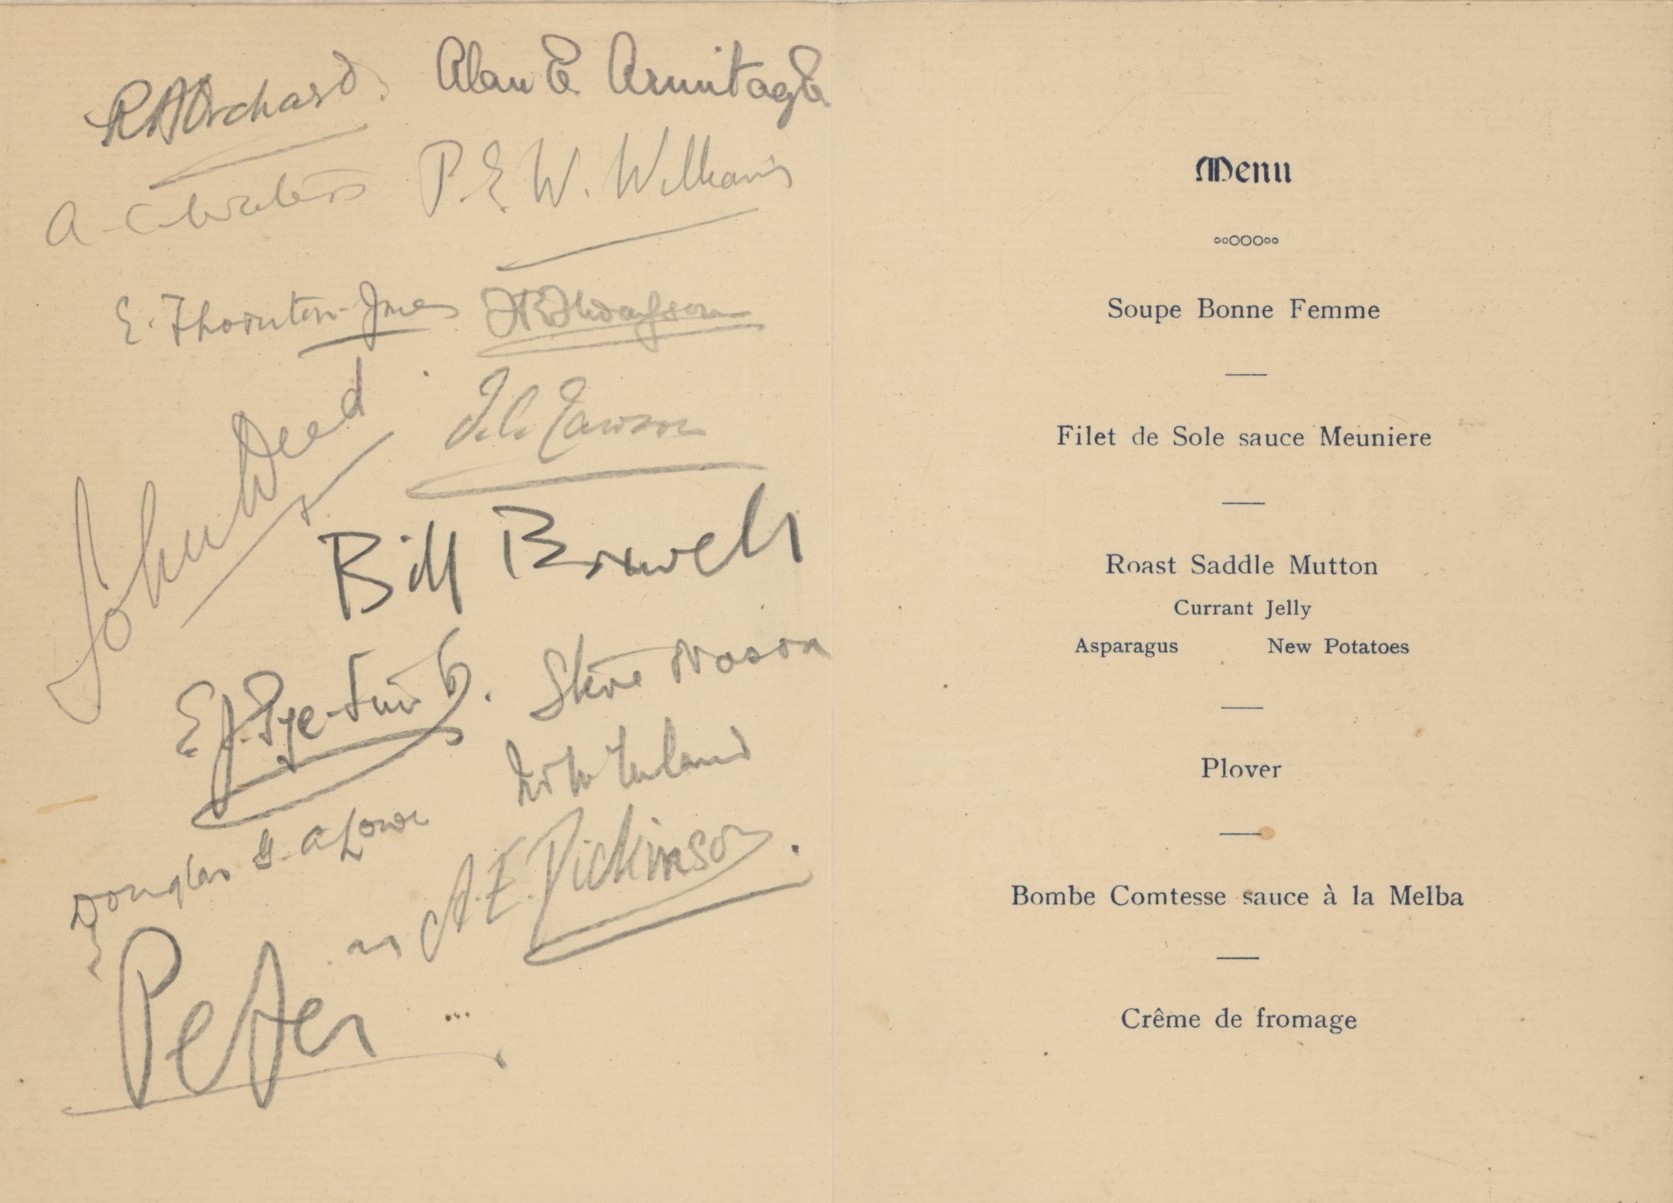 R A Orchard.
Alan E Armitage
A. C.
P. E. W. Williams
E. Thornton-Jones
J. C. Lawson
John Deed
Bill Boxwell
E J. Pye-Smith.
Steve
Douglas G. A. Lowe
A. E. Dickinson.
Peter
Menu
Soupe Bonne Femme
Filet de Sole sauce Meuniere
Roast Saddle Mutton
Currant Jelly
Asparagus New Potatoes
Plover
Bombe Comtesse sauce à la Melba
Crême de fromage